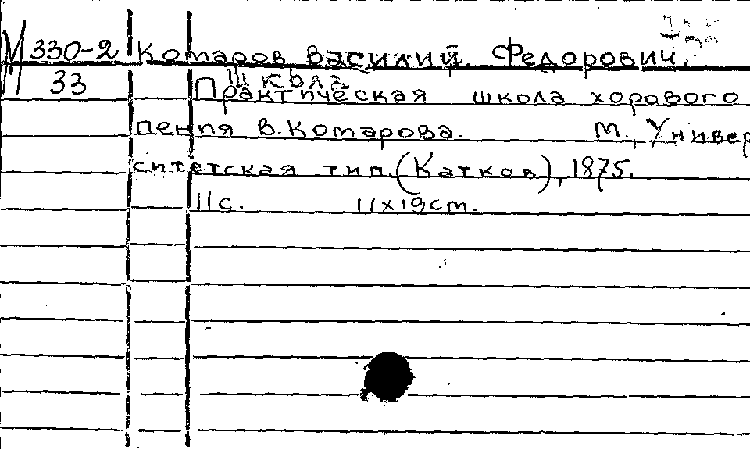 М 330-2 Комаров Василий Федорович.
33 Школа
Практическая школа хорового
пения В. Комарова. М., Универ
ситетская тип. (Катков), 1875.
11 с. 11x19 см.